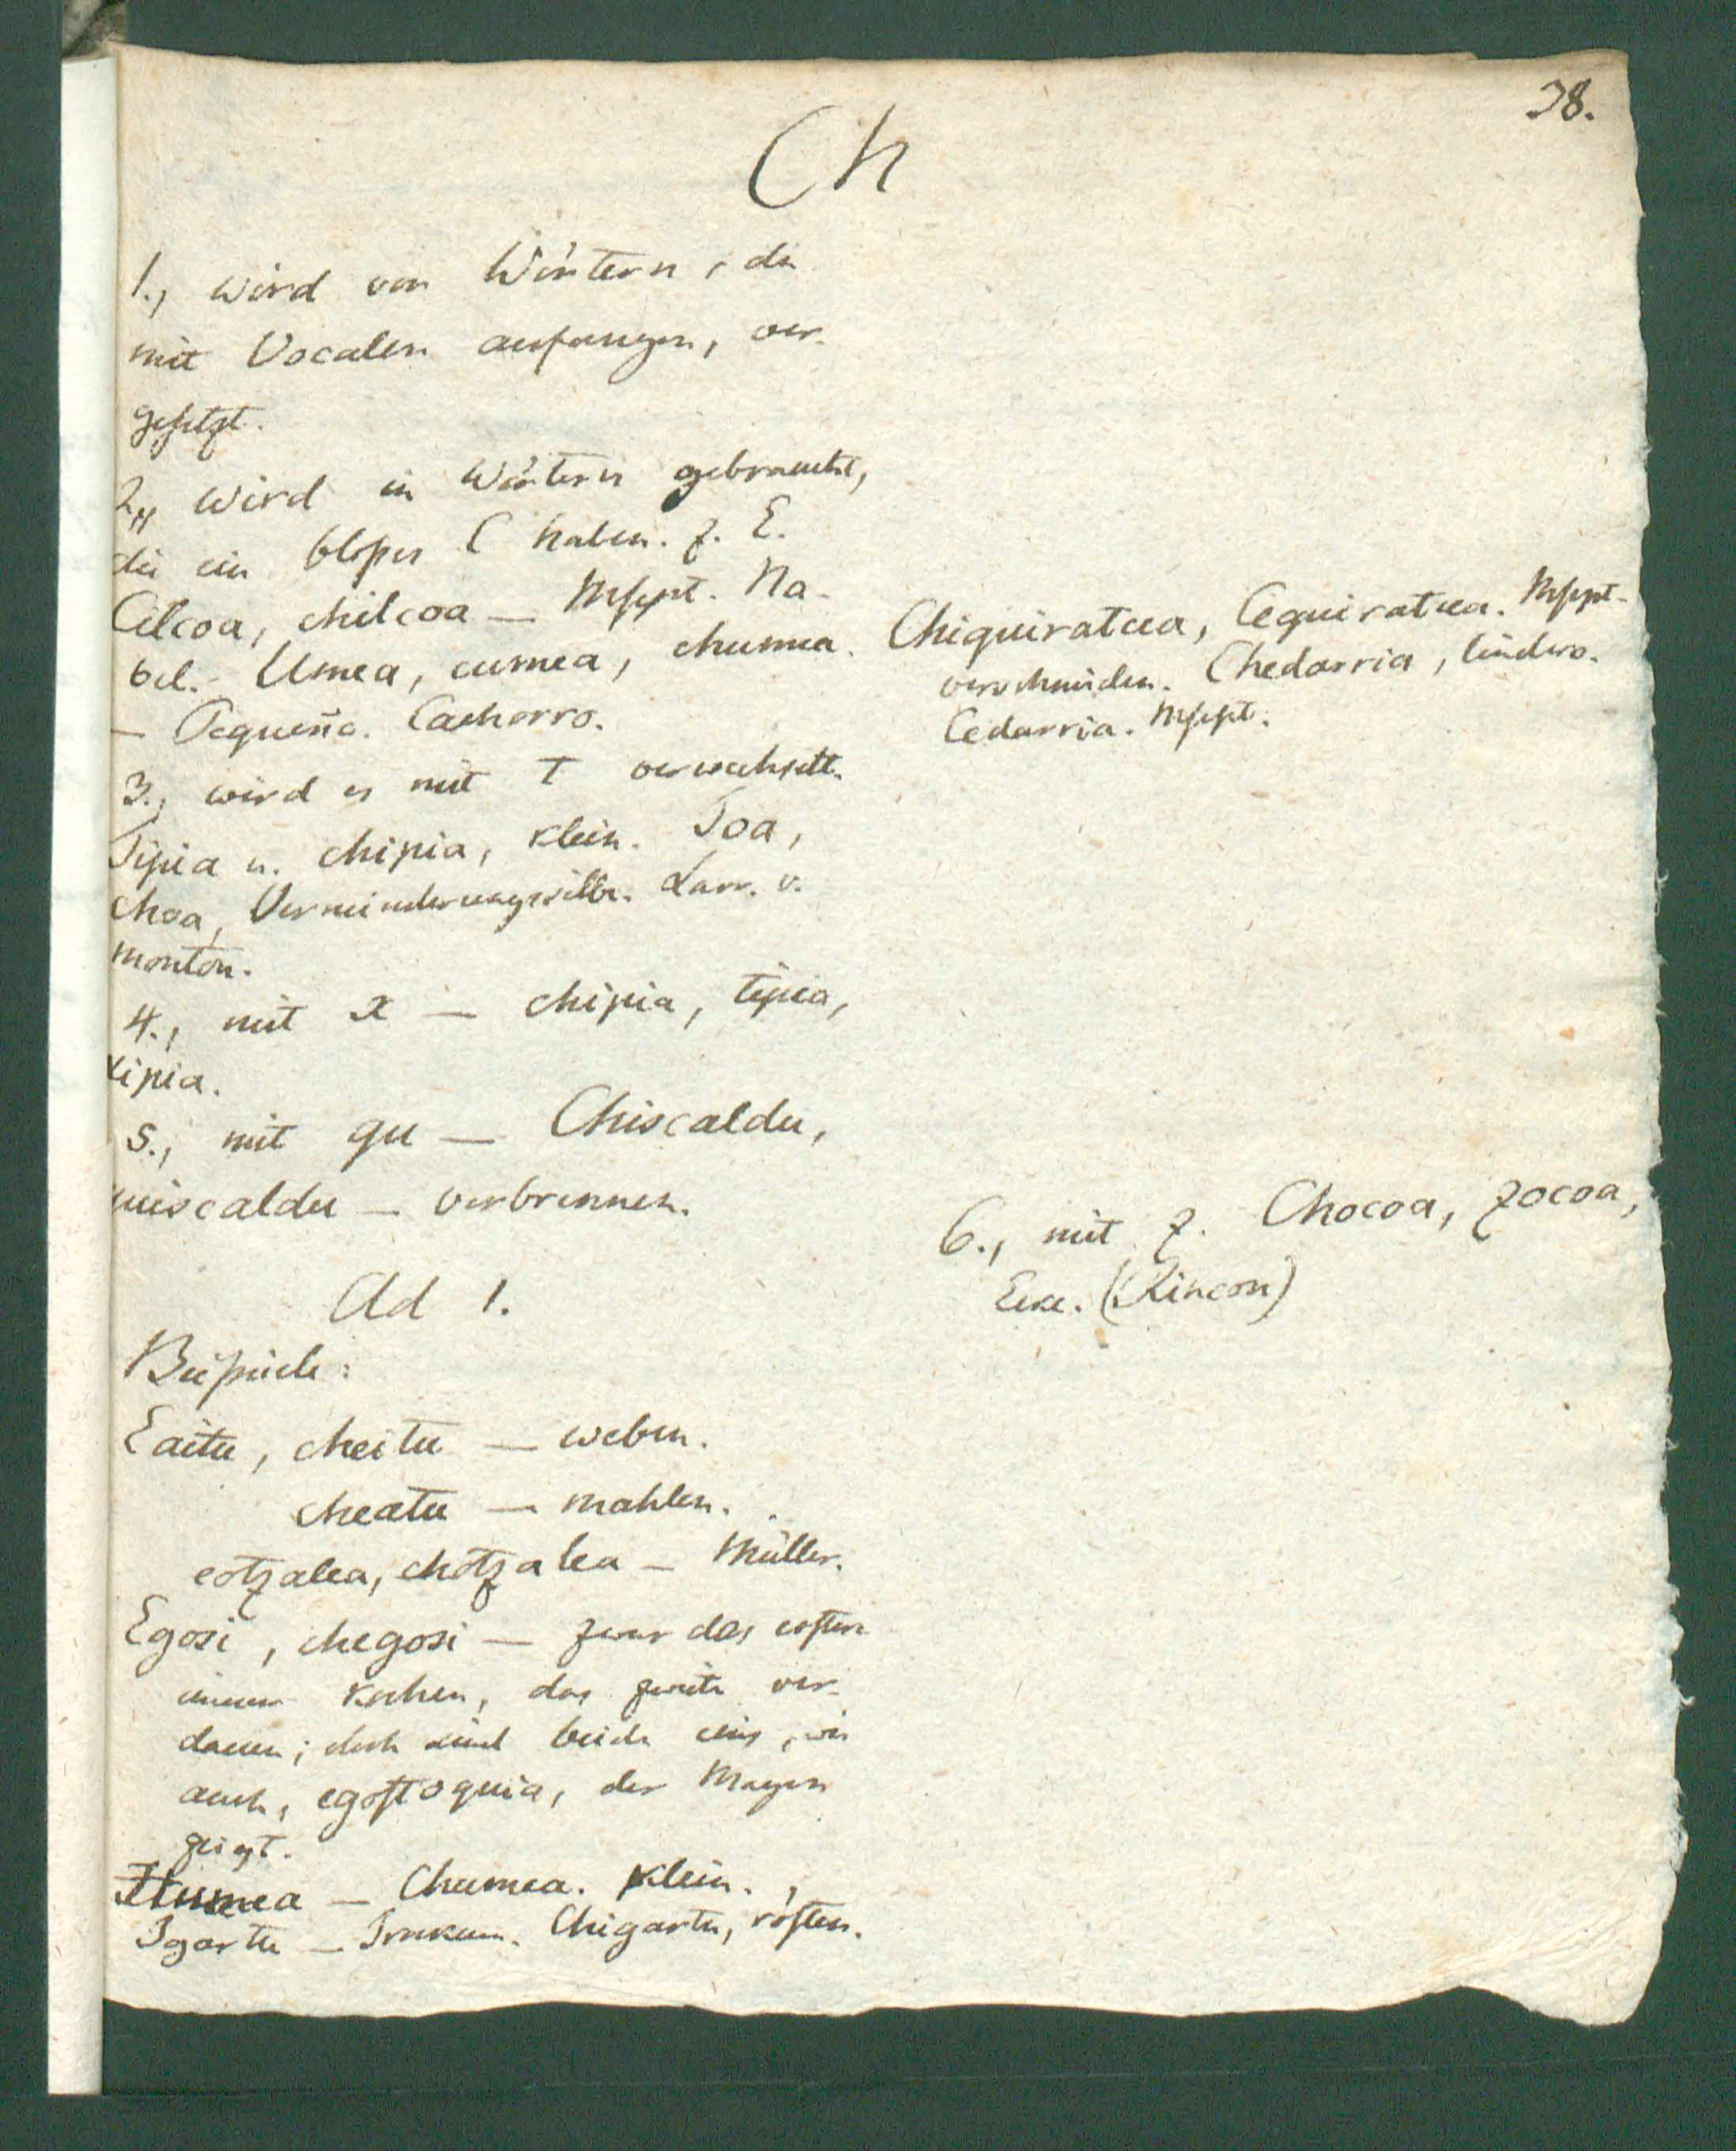 38.
Ch
1., wird von Wörtern, die
mit Vocalen anfangen, vor-
gesetzt.
2., wird in Wörtern gebraucht,
die ein bloßes C haben. z. E.
Cilcoa, chilcoa — Mscpt. Na-
bel. Umea, cumea, chumea.
— Pequeño. Cachorro.
3., wird es mit T verwechselt.
Tipia u. chipia, klein. Toa,
choa, Verminderungssilbe. Larr. v.
monton.
4., mit x — chipia, tipia,
xipia.
5., mit qu — Chiscaldu,
quiscaldu — verbrennen.
Ad 1.
Beispiele:
Eaitu, cheitu — weben.
cheatu — mahlen.
eotzalea, chotzalea — Müller.
Egosi, chegosi — zwar das erstere
immer kochen, das zweite ver-
dauen; doch sind beide eins, wie
auch, egostoquia, der Magen
zeigt.
Humea — Chumea. Klein.
Igartu — Trokcen. Chigartu, rösten.
Chiquiratcea, Cequiratcea. Mscpt.
verschneiden. Chedarria, lindero.
Cedarria. Mscpt.
6., mit z. Chocoa, zocoa,
Ecke. (Rincon)